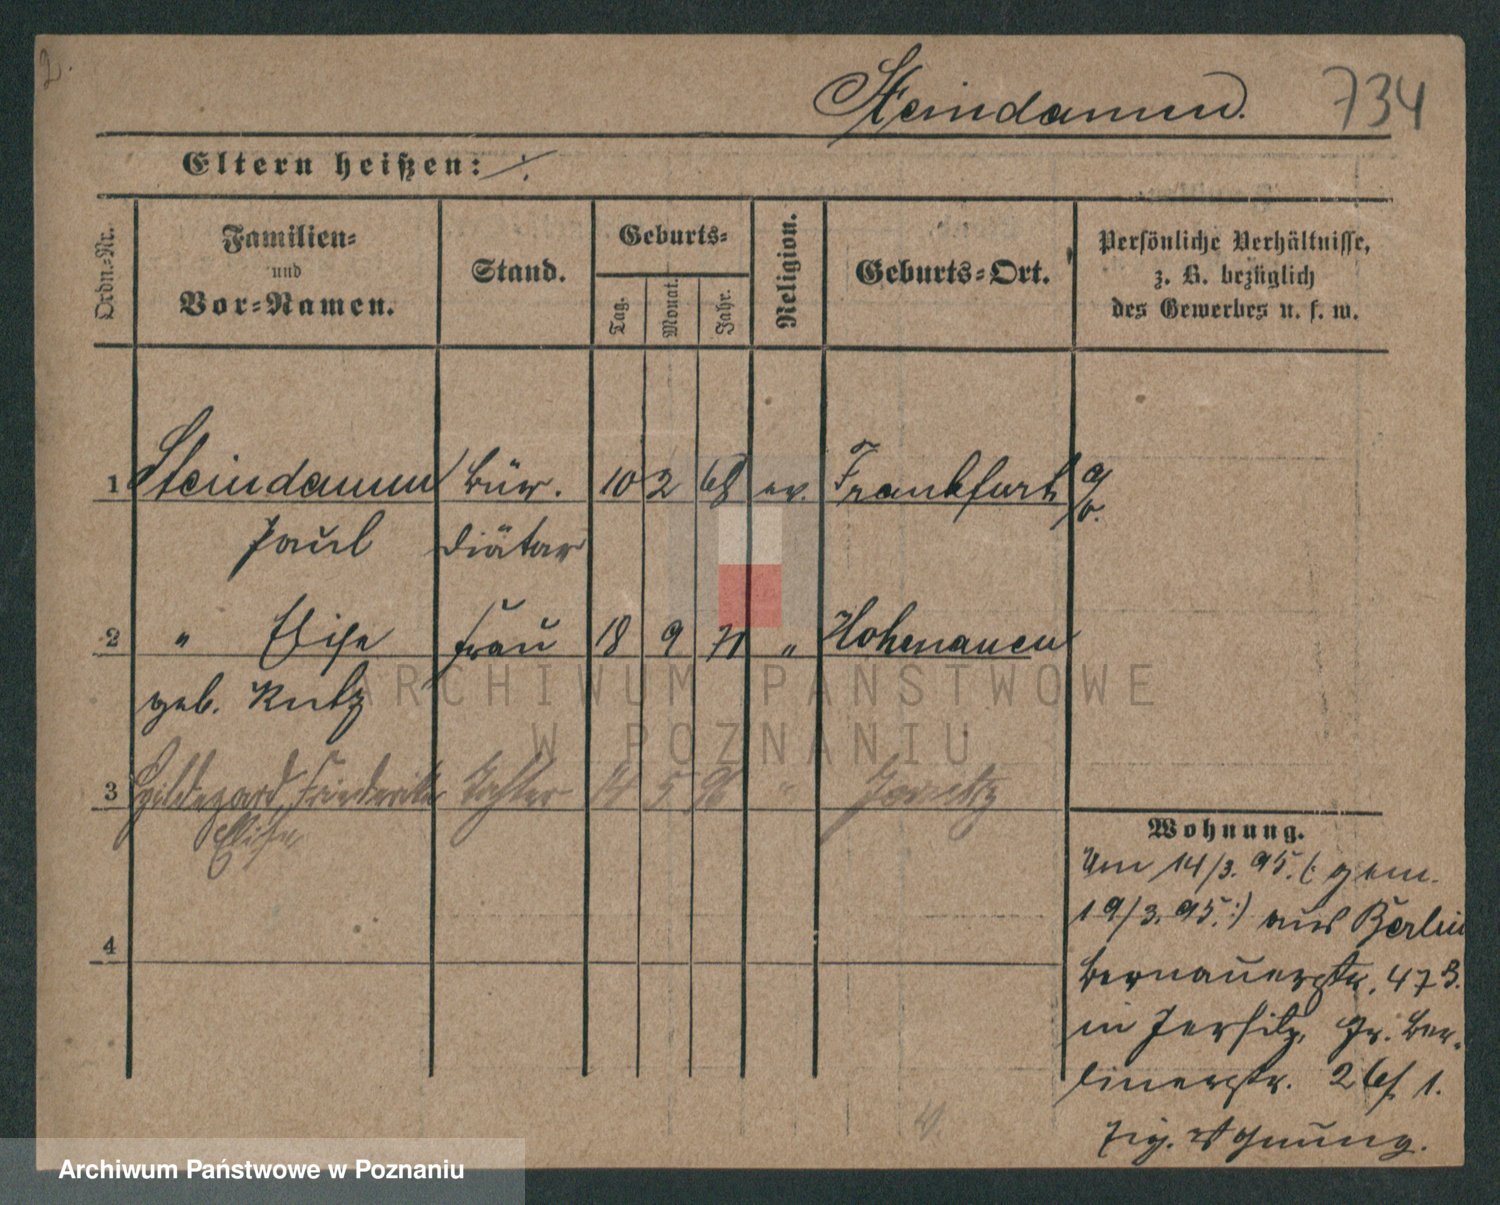 2.
Steindamm.
734
Eltern heißen: ./.
Ordn.-Nr.
Familien-
und
Vor-Namen.
Stand.
Geburts-
Tag.
Monat.
Jahr.
Religion.
Geburts-Ort.
Persönliche Verhältnisse,
z. B. bezüglich
des Gewerbes u. s. w.
1 Steindamm Bür. 10 2 68 ev. Frankfurt a/o.
Paul diätar
2 " Elise Frau 18 9 71 " Hohenauen
geb. Kutz
3 Hildegard, Friederike Tochter 14 5 96 " Jersitz
Elise
4
Wohnung.
Um 14/3. 95. (: gem.
19/3. 95. :) aus Berlin
Bernauerstr. 47 B.
in Jersitz, Gr. Ber-
linerstr. 26 1.
Wohnung.
ARCHIWUM PAŃSTWOWE
W POZNANIU
Archiwum Państwowe w Poznaniu